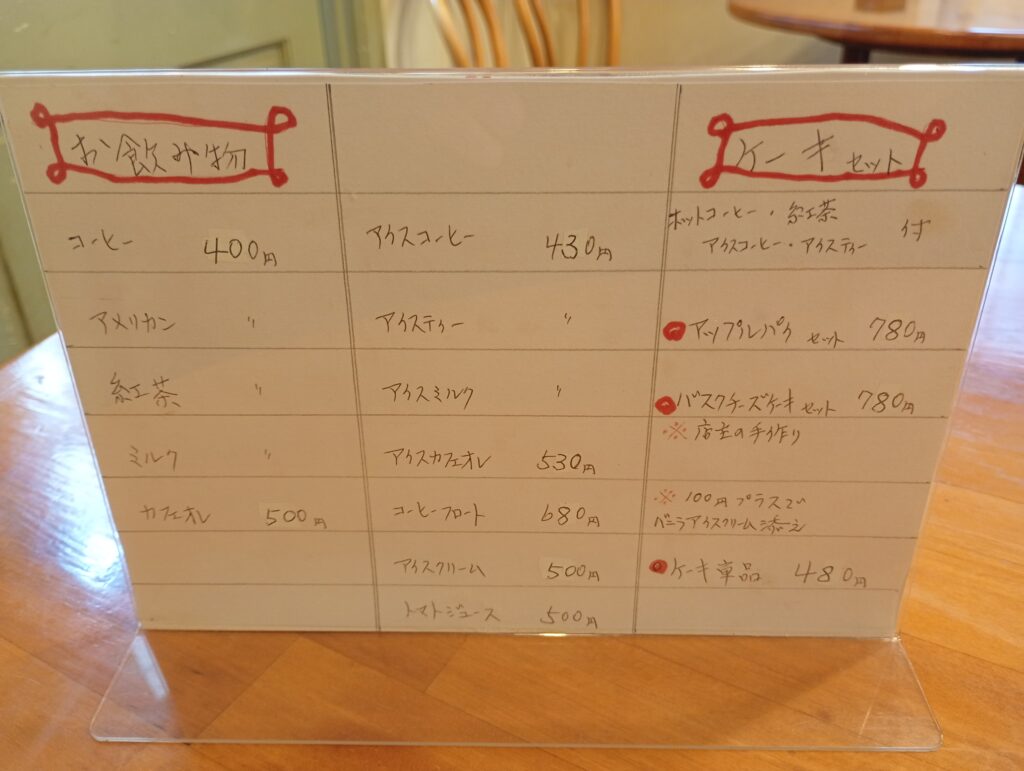 お飲み物
コーヒー 400円
アメリカン 〃
紅茶 〃
ミルク 〃
カフェオレ 500円
アイスコーヒー 430円
アイスティー 〃
アイスミルク 〃
アイスカフェオレ 530円
コーヒーフロート 680円
アイスクリーム 500円
トマトジュース 500円
ケーキセット
ホットコーヒー・紅茶
アイスコーヒー・アイスティー 付
アップルパイ セット 780円
バスクチーズケーキ セット 780円
※ 店主の手作り
※ 100円プラスで
バニラアイスクリーム添え
ケーキ単品 480円